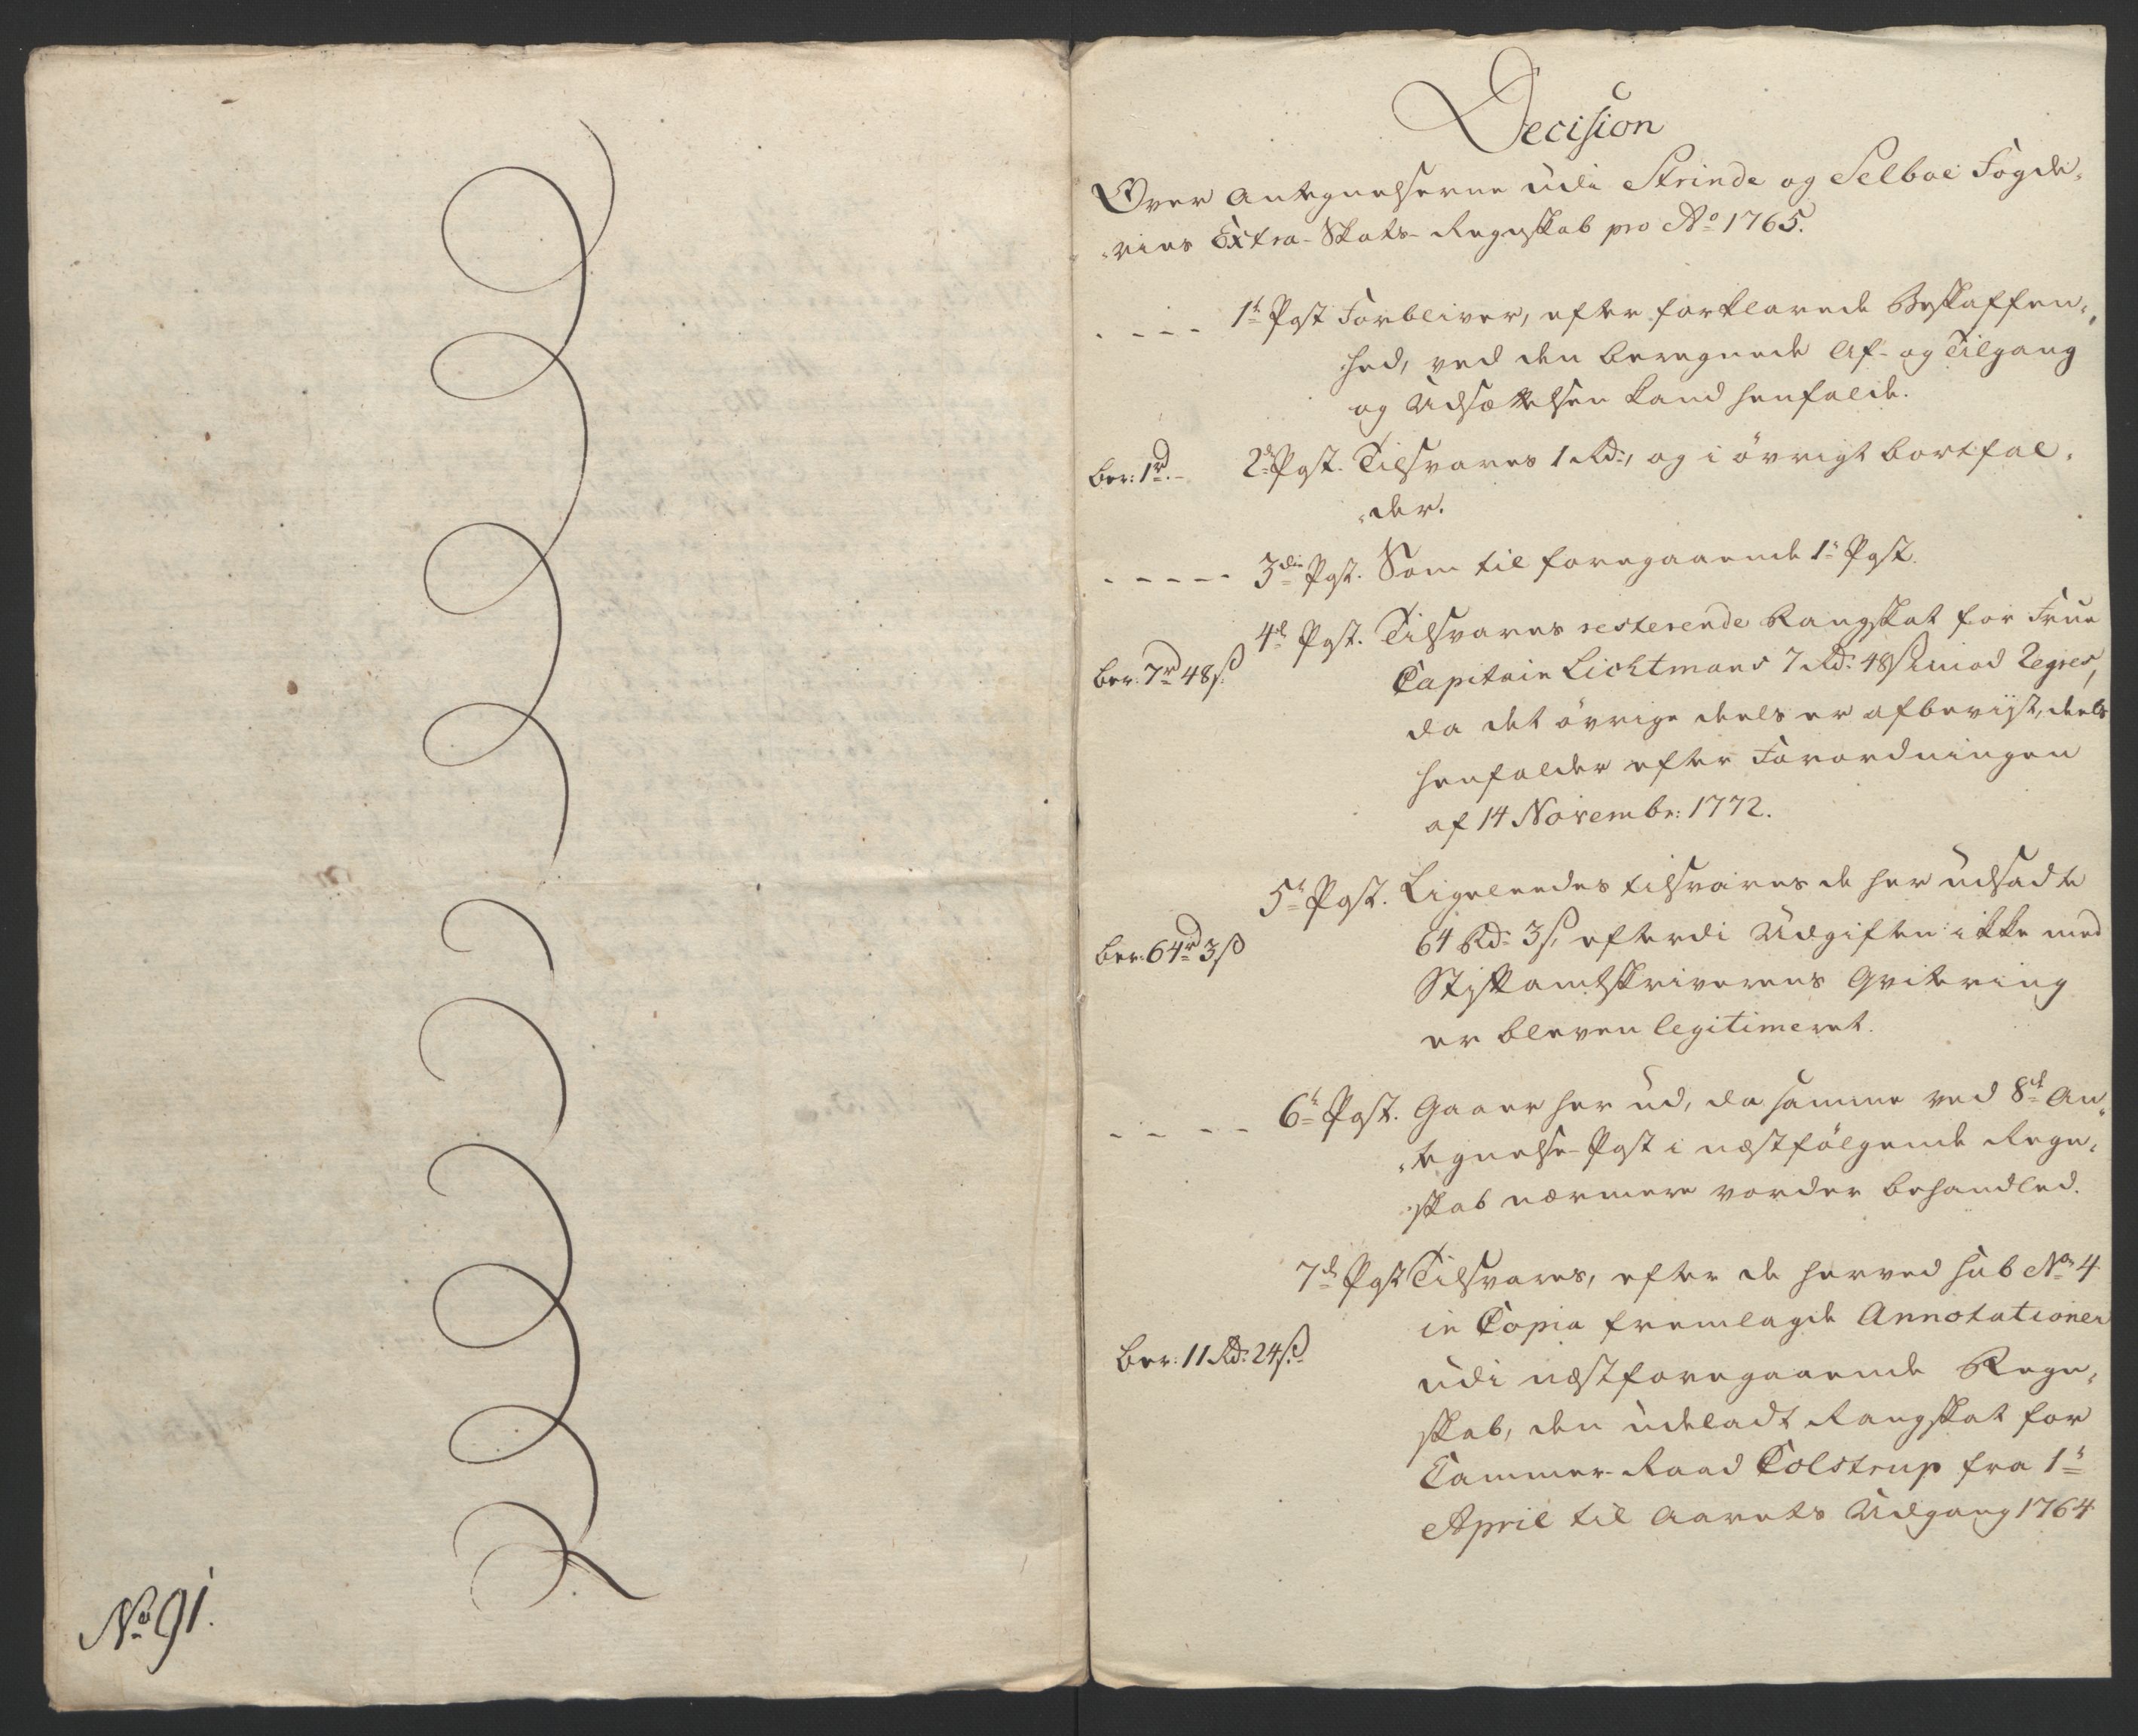 No 91.
Decision
Over Antegnelserne udi Strinde og Selboe Fogde-
-ries Extra-Skats-Regnskab pro Ao 1765.
- - - - 1te Post Forbliver, efter forklarede Beskaffen-
hed, ved den beregnede Af- og Tilgang
og Udsættelsen kand henfalde.
ber: 1rd. - 2den Post. Tilsvares 1 Rd:, og i övrigt bortfal-
-der.
- - - - - 3die Post. Som til foregaaende 1te Post.
4de Post. Tilsvares resterende Rangskat for Frue
ber: 7rd 48ß Capitain Lichtmans 7 Rd: 48ß imod Regres,
da det övrige deels er afbeviist, deels
henfalder efter Forordningen
af 14 Novembr: 1772.
5te Post. Ligeleedes tilsvares de her udsadte
ber: 64rd 3ß 64 Rd: 3ß, efterdi Udgiften ikke med
Stiftamtskriverens Qvitering
er bleven legitimeret.
- - - - 6te Post. Gaaer her ud, da samme ved 8de An-
-tegnelse-Post i næstfölgende Regn-
-skab nærmere vorder behandled.
7de Post Tilsvares, efter de herved sub No 4
in Copia fremlagde Annotationer
ber: 11 Rd: 24ß udi næstforegaaende Regn-
skab, den udeladt Rangskat for
Cammer-Raad Colstrup fra 1te
April til Aarets Udgang 1764